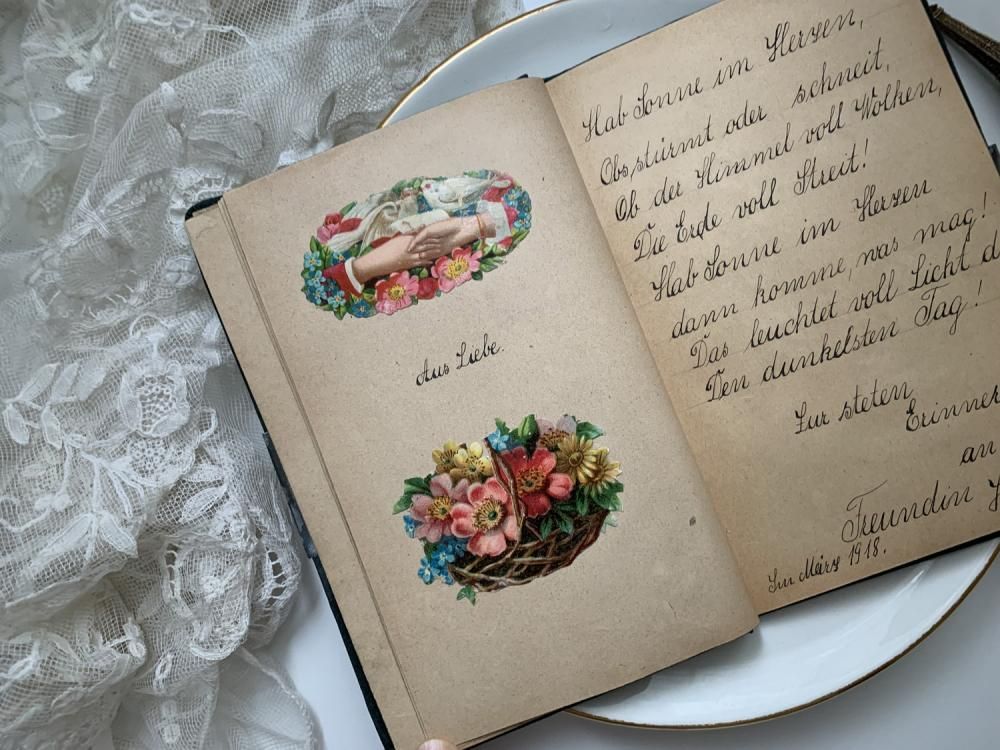 Aus Liebe.
Hab Sonne im Herzen,
Obs stürmt oder schneit,
Ob der Himmel voll Wolken,
Die Erde voll Streit!
Hab Sonne im Herzen
dann komme, was mag!
Das leuchtet voll Licht d
Den dunkelsten Tag!
Zur steten
Erinner
an
Freundin
Im März 1918.